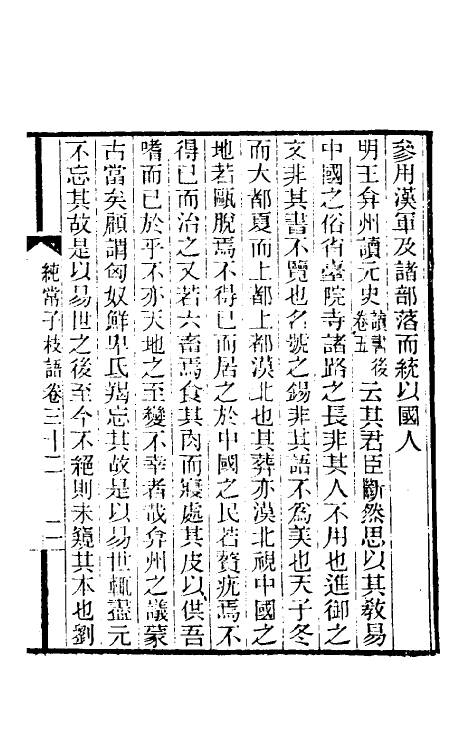 參用漢軍及諸部落而統以國人
明王弇州讀元史讀書後卷五云其君臣斷然思以其敎易
中國之俗省臺院寺諸路之長非其人不用也進御之
文非其書不覽也名號之錫非其語不爲美也天子冬
而大都夏而上都上都漠北也其葬亦漠北視中國之
地若甌脫焉不得已而居之於中國之民若贅疣焉不
得已而治之又若六畜焉食其肉而寢處其皮以供吾
嗜而已於乎不亦天地之至變不幸者哉弇州之議蒙
古當矣顧謂匈奴鮮卑氐羯忘其故是以易世輒盡元
不忘其故是以易世之後至今不絕則未窺其本也劉
純常子枝語卷三十二
二